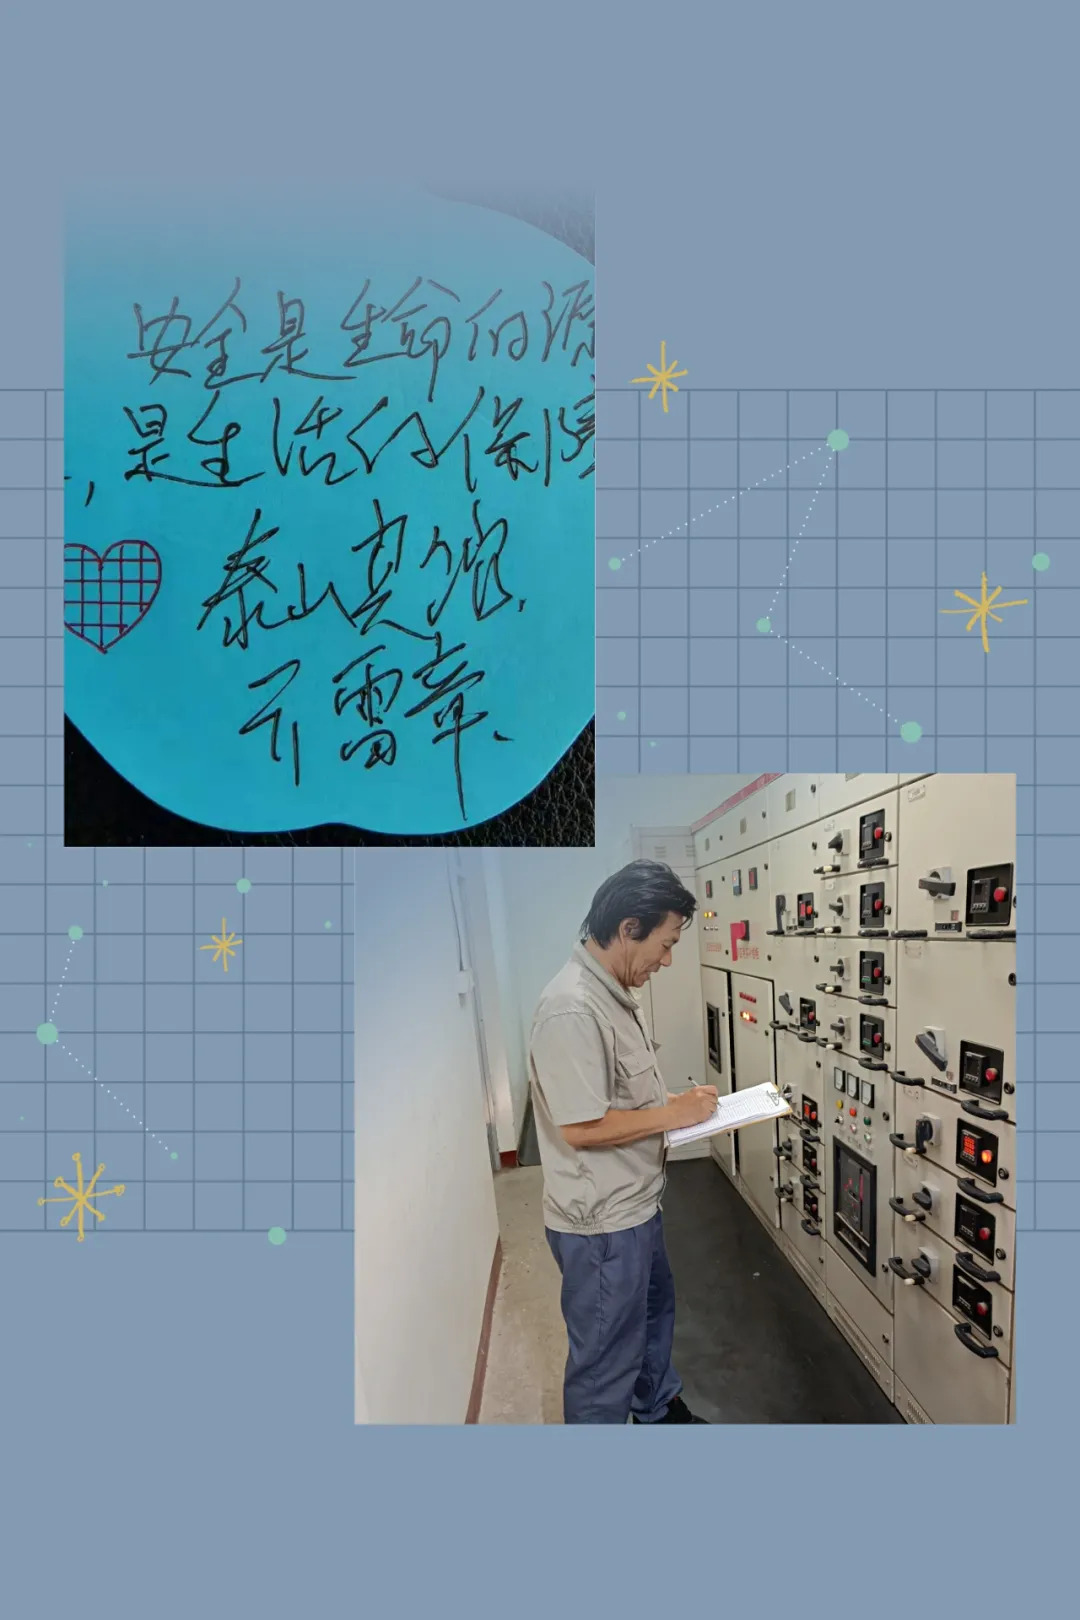 安全是生命的源
是生活的保障
泰山其
雷章